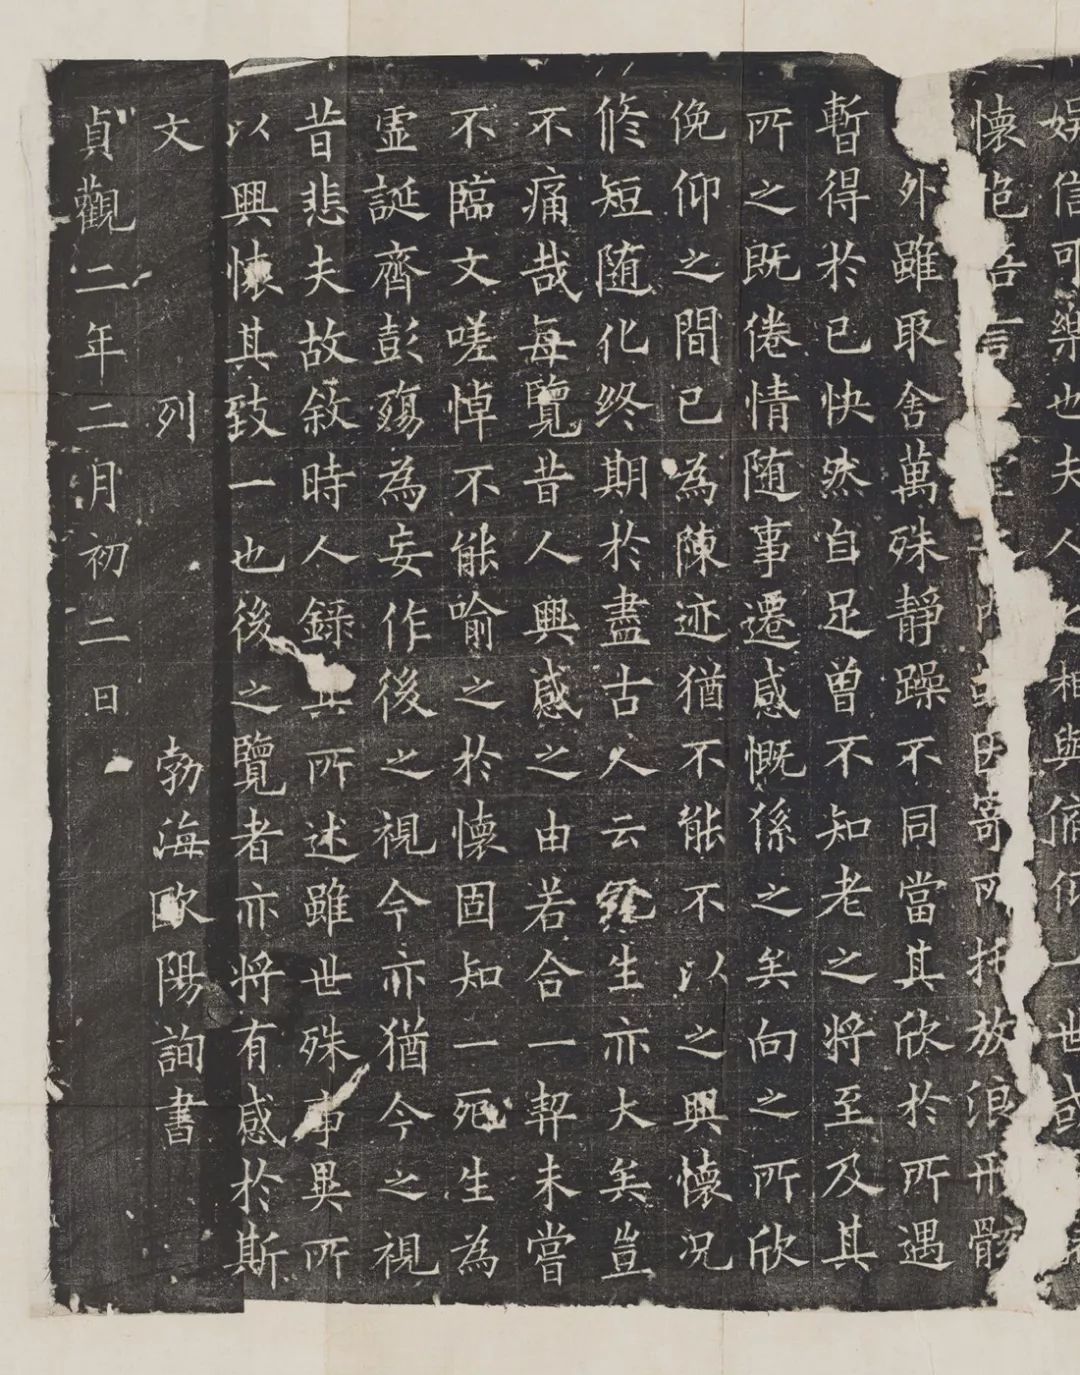 娛信可樂也夫人之相與俯仰一世或
懷抱悟言內或因寄所托放浪形骸
外雖取舍萬殊靜躁不同當其欣於所遇
暫得於已快然自足曽不知老之將至及其
所之既倦情随事遷感慨係之矣向之所欣
俛仰之間已為陳迹猶不能不以之興懷況
修短随化終期於盡古人云死生亦大矣豈
不痛哉每覽昔人興感之由若合一契未嘗
不臨文嗟悼不能喻之於懷固知一死生為
虛誕齊彭殤為妄作後之視今亦猶今之視
昔悲夫故敘時人錄其所述雖世殊事異所
以興懷其致一也後之覽者亦將有感於斯
文 列 勃海歐陽詢書
貞觀二年二月初二日